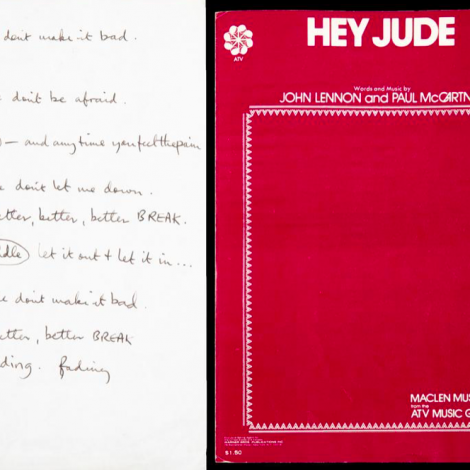 don't make it bad.
don't be afraid.
— and any time you feel the pain
don't let me down.
better, better BREAK.
let it out + let it in...
don't make it bad.
better BREAK
fading
HEY JUDE
ATV
Words and Music by
JOHN LENNON and PAUL McCARTN
MACLEN MUS
from the
ATV MUSIC G
$1.50